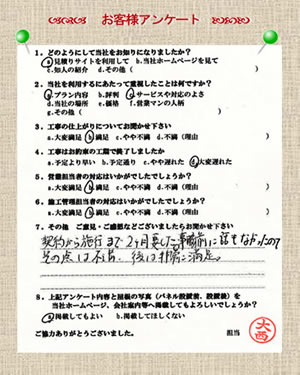 お客様アンケート
1．どのようにして当社をお知りになりましたか？
a.見積りサイトを利用して　b.当社ホームページを見て
c.知人の紹介　d.その他（　　　　　　　　）
2．当社を利用するにあたって重視したことは何ですか？
a.プラン内容　b.評判　c.サービスや対応のよさ
d.当社の場所　e.価格　f.営業マンの人柄
g.その他（　　　　　　　　）
3．工事の仕上がりについてお聞かせ下さい
a.大変満足　b.満足　c.やや不満　d.不満（理由　　　　）
4．工事はお約束の工期で終了しましたか
a.予定より早い　b.予定通り　c.やや遅れた　d.大変遅れた
5．営業担当者の対応はいかがでしたでしょうか？
a.大変満足　b.満足　c.やや不満　d.不満
6．施工管理担当者の対応はいかがでしたでしょうか？
a.大変満足　b.満足　c.やや不満　d.不満（理由　　　　）
7．その他　ご意見・ご感想などございましたらお聞かせ下さい
契約から施行まで2ヶ月要した事
その点は不満、後は非常に満足。
8．上記アンケート内容と屋根の写真（パネル設置前、設置後）を
当社ホームページ、会社案内等へ掲載してもよろしいでしょうか？
a.掲載してもよい　b.掲載してほしくない
ご協力ありがとうございました。　担当　大西